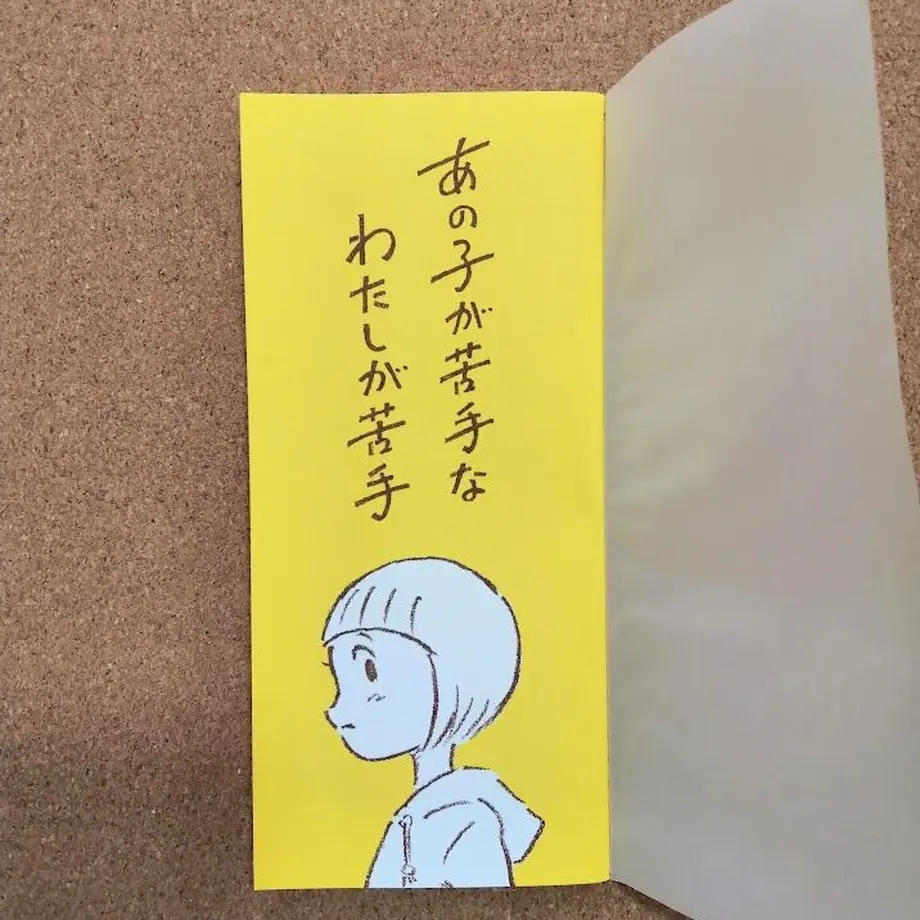 あの子が苦手な
わたしが苦手